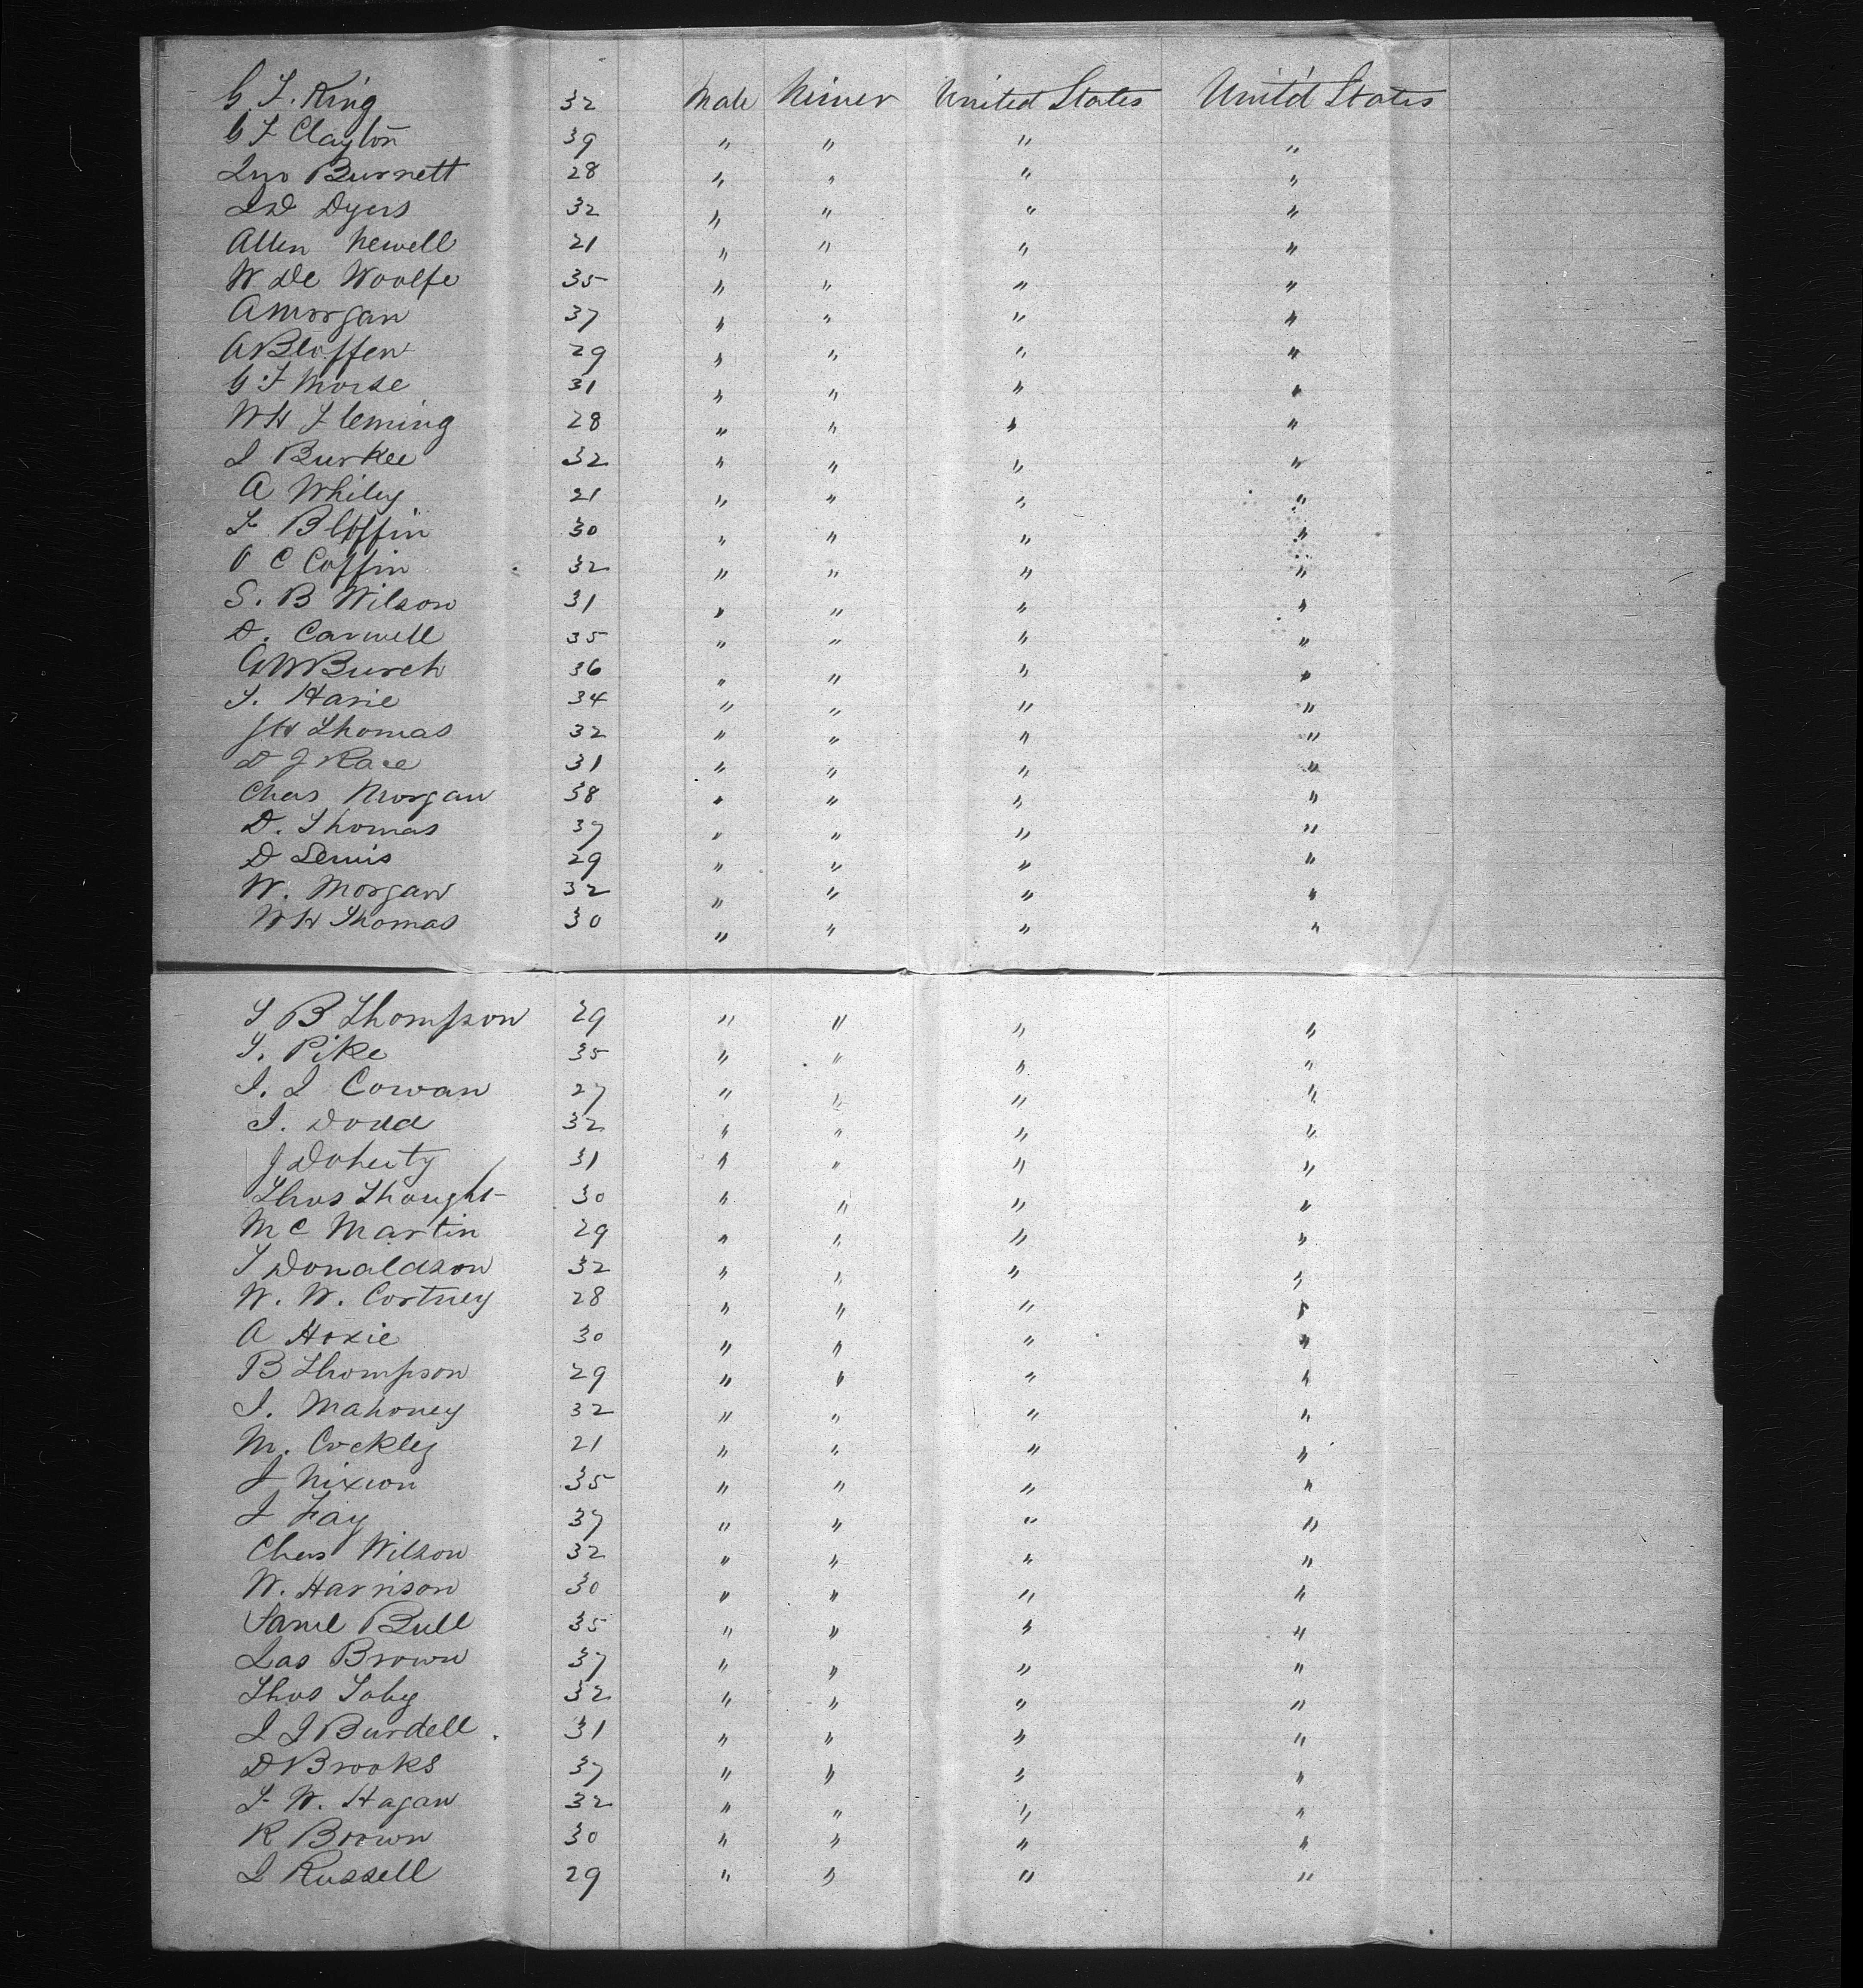 G F. King 32 Male Miner United States United States
G F Clayton 39 " " " "
Jno Burnett 28 " " " "
J D Dyers 32 " " " "
Allen Newell 21 " " " "
W De Woolfe 35 " " " "
A Morgan 37 " " " "
A Bloffen 29 " " " "
G F Morse 31 " " " "
W H Fleming 28 " " " "
J Burkee 32 " " " "
A Whiley 21 " " " "
F Bloffin 30 " " " "
O C Coffin 32 " " " "
S. B Wilson 31 " " " "
D. Carwell 35 " " " "
G W Burch 36 " " " "
T. Harie 34 " " " "
J H Thomas 32 " " " "
D J Race 31 " " " "
Chas Morgan 38 " " " "
D. Thomas 37 " " " "
D Lewis 29 " " " "
W. Morgan 32 " " " "
W H Thomas 30 " " " "
T B Thompson 29 " " " "
T. Pike 35 " " " "
J. J Cowan 27 " " " "
J. Dodd 32 " " " "
J Doherty 31 " " " "
Thos Thought 30 " " " "
M C Martin 29 " " " "
T Donaldson 32 " " " "
W. W. Cortney 28 " " " "
A Hoxie 30 " " " "
B Thompson 29 " " " "
J. Mahoney 32 " " " "
M. Cockley 21 " " " "
J Nixon 35 " " " "
J Fay 37 " " " "
Chas Wilson 32 " " " "
W. Harrison 30 " " " "
Saml Bull 35 " " " "
Jas Brown 37 " " " "
Thos Toby 32 " " " "
J J Burdell 31 " " " "
D Brooks 37 " " " "
F W. Hagan 32 " " " "
R Brown 30 " " " "
J Russell 29 " " " "